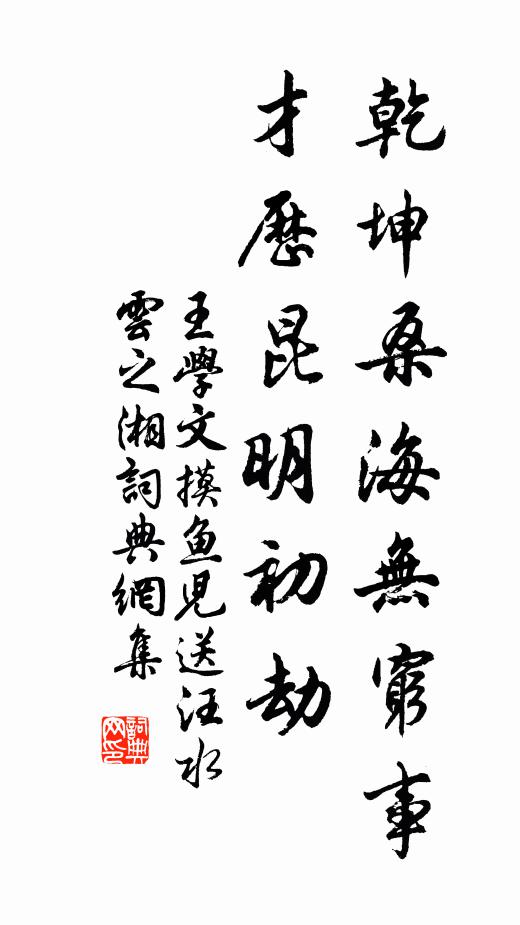 乾坤桑海無窮事
才歷昆明初劫
王學文摸鱼兒送汪水
雲之湘詞典網集
詞典
网印